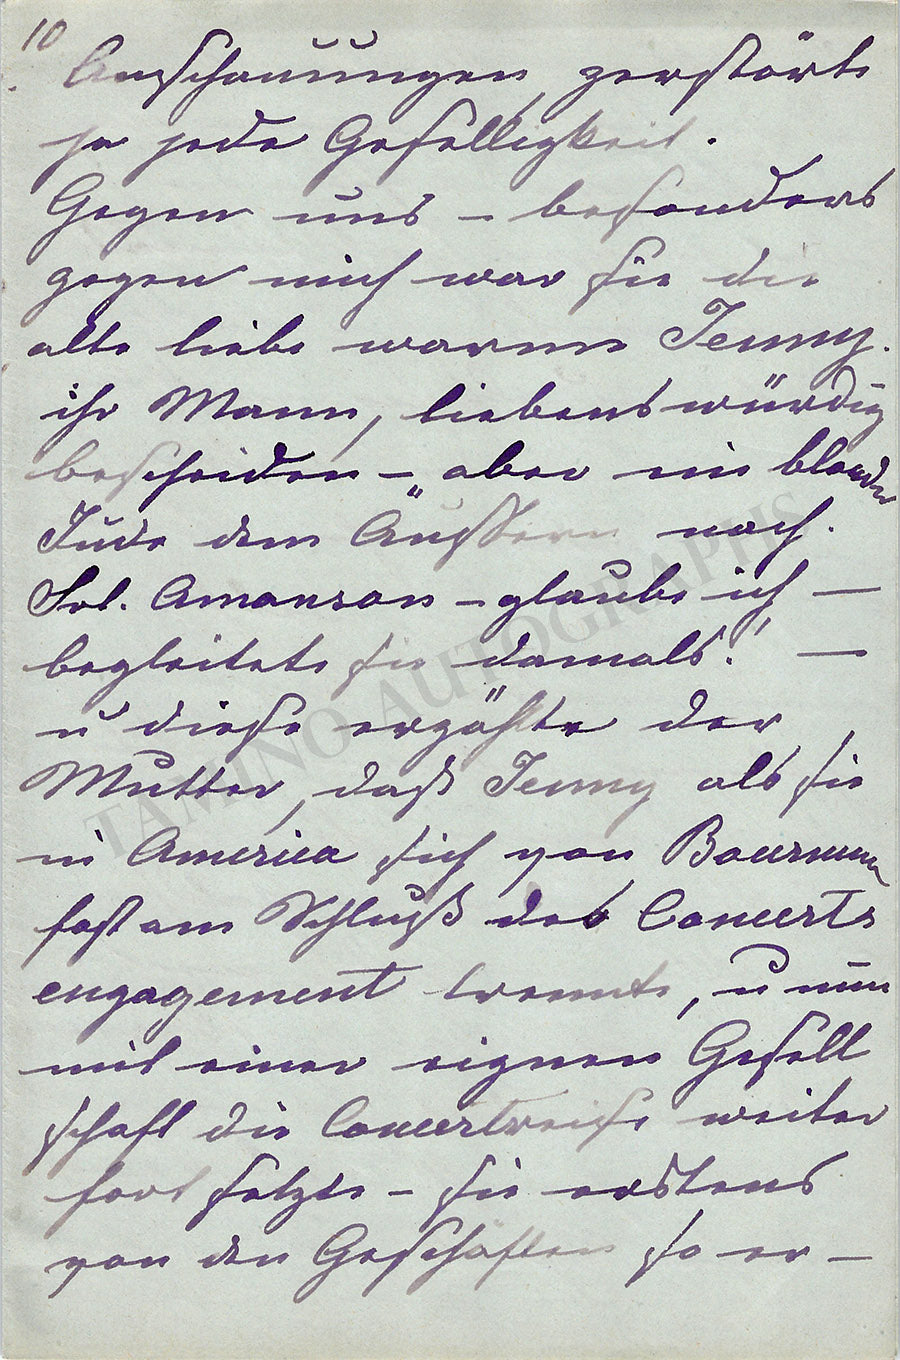 10
Anschauungen, zerstörte
ja jede Geselligkeit.
Gegen uns – besonders
gegen mich war sie die
alte liebe warme Jenny.
ihr Mann, liebenswürdig
bescheiden – aber ein blonder
Jude dem Äußern nach.
Frl. Amanson – glaube ich –
begleitete sie damals! –
u diese erzählte der
Mutter, daß Jenny als sie
in America sich von
fast am Schluß des Concerts
engagement trennte, u nun
mit einer eignen Gesell
schaft die Concertreise weiter
fort setzte – sie erstens
von den Geschäften so er –
TAMINO AUTOGRAPHS